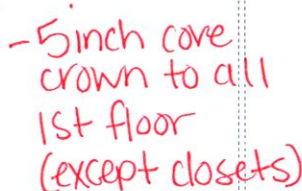 -5inch cove
crown to all
1st floor
(except closets)